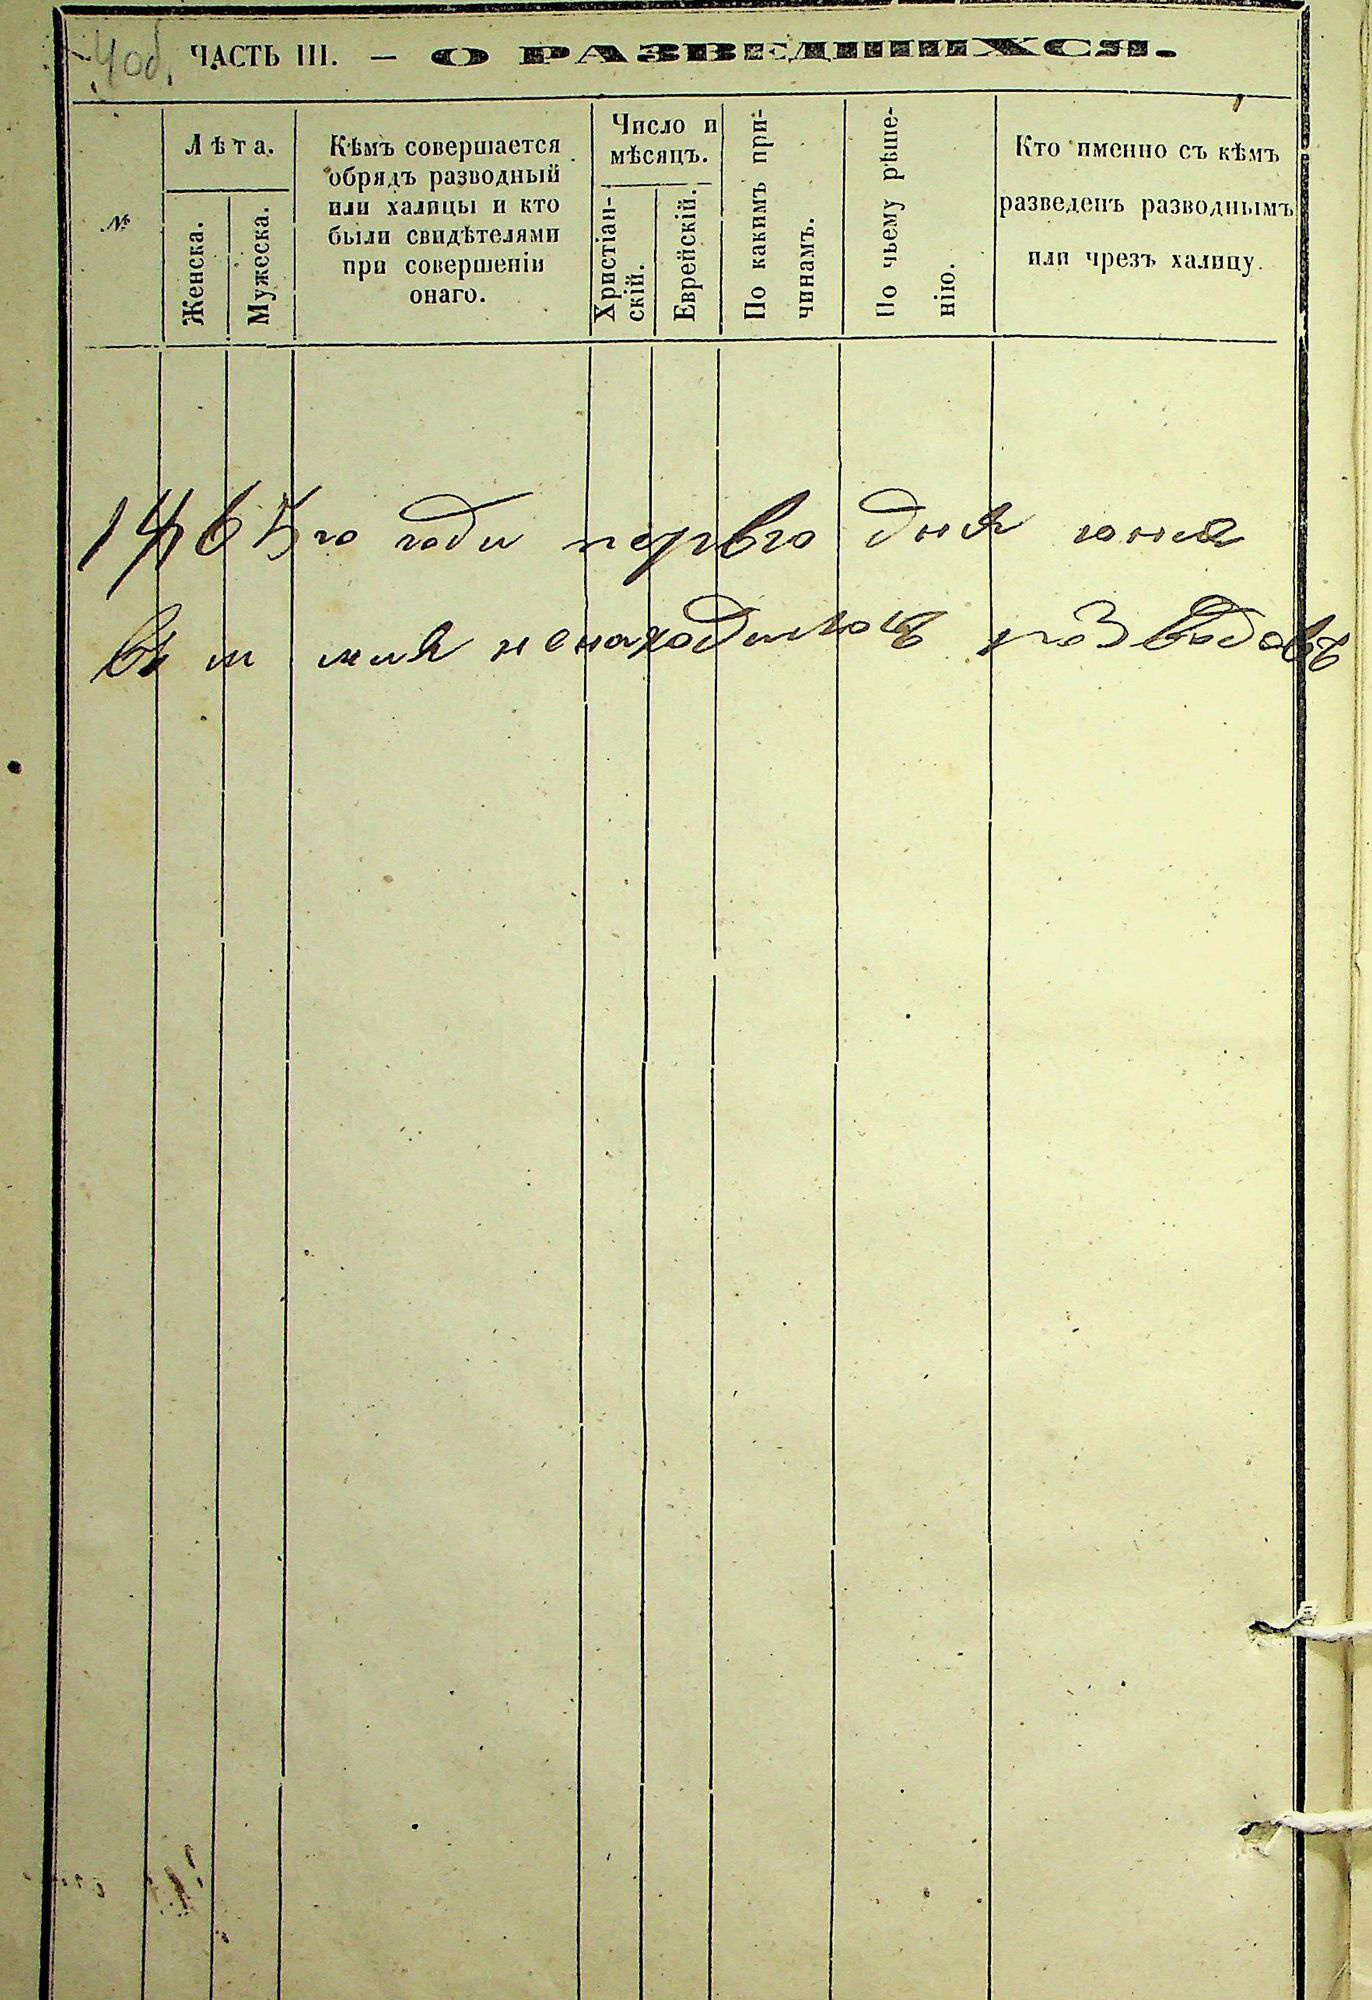 4об.
ЧАСТЬ III. — О РАЗВЕДШИХСЯ.
№
Лѣта.
Женска.
Мужеска.
Кѣмъ совершается
обрядъ разводный
или халицы и кто
были свидѣтелями
при совершеніи
онаго.
Число и
мѣсяцъ.
Христіан-
скій.
Еврейскій.
По какимъ при-
чинамъ.
По чьему рѣше-
нію.
Кто именно съ кѣмъ
разведенъ разводнымъ
или чрезъ халицу.
1865го года перваго дня юня
ненаходилось разводовъ